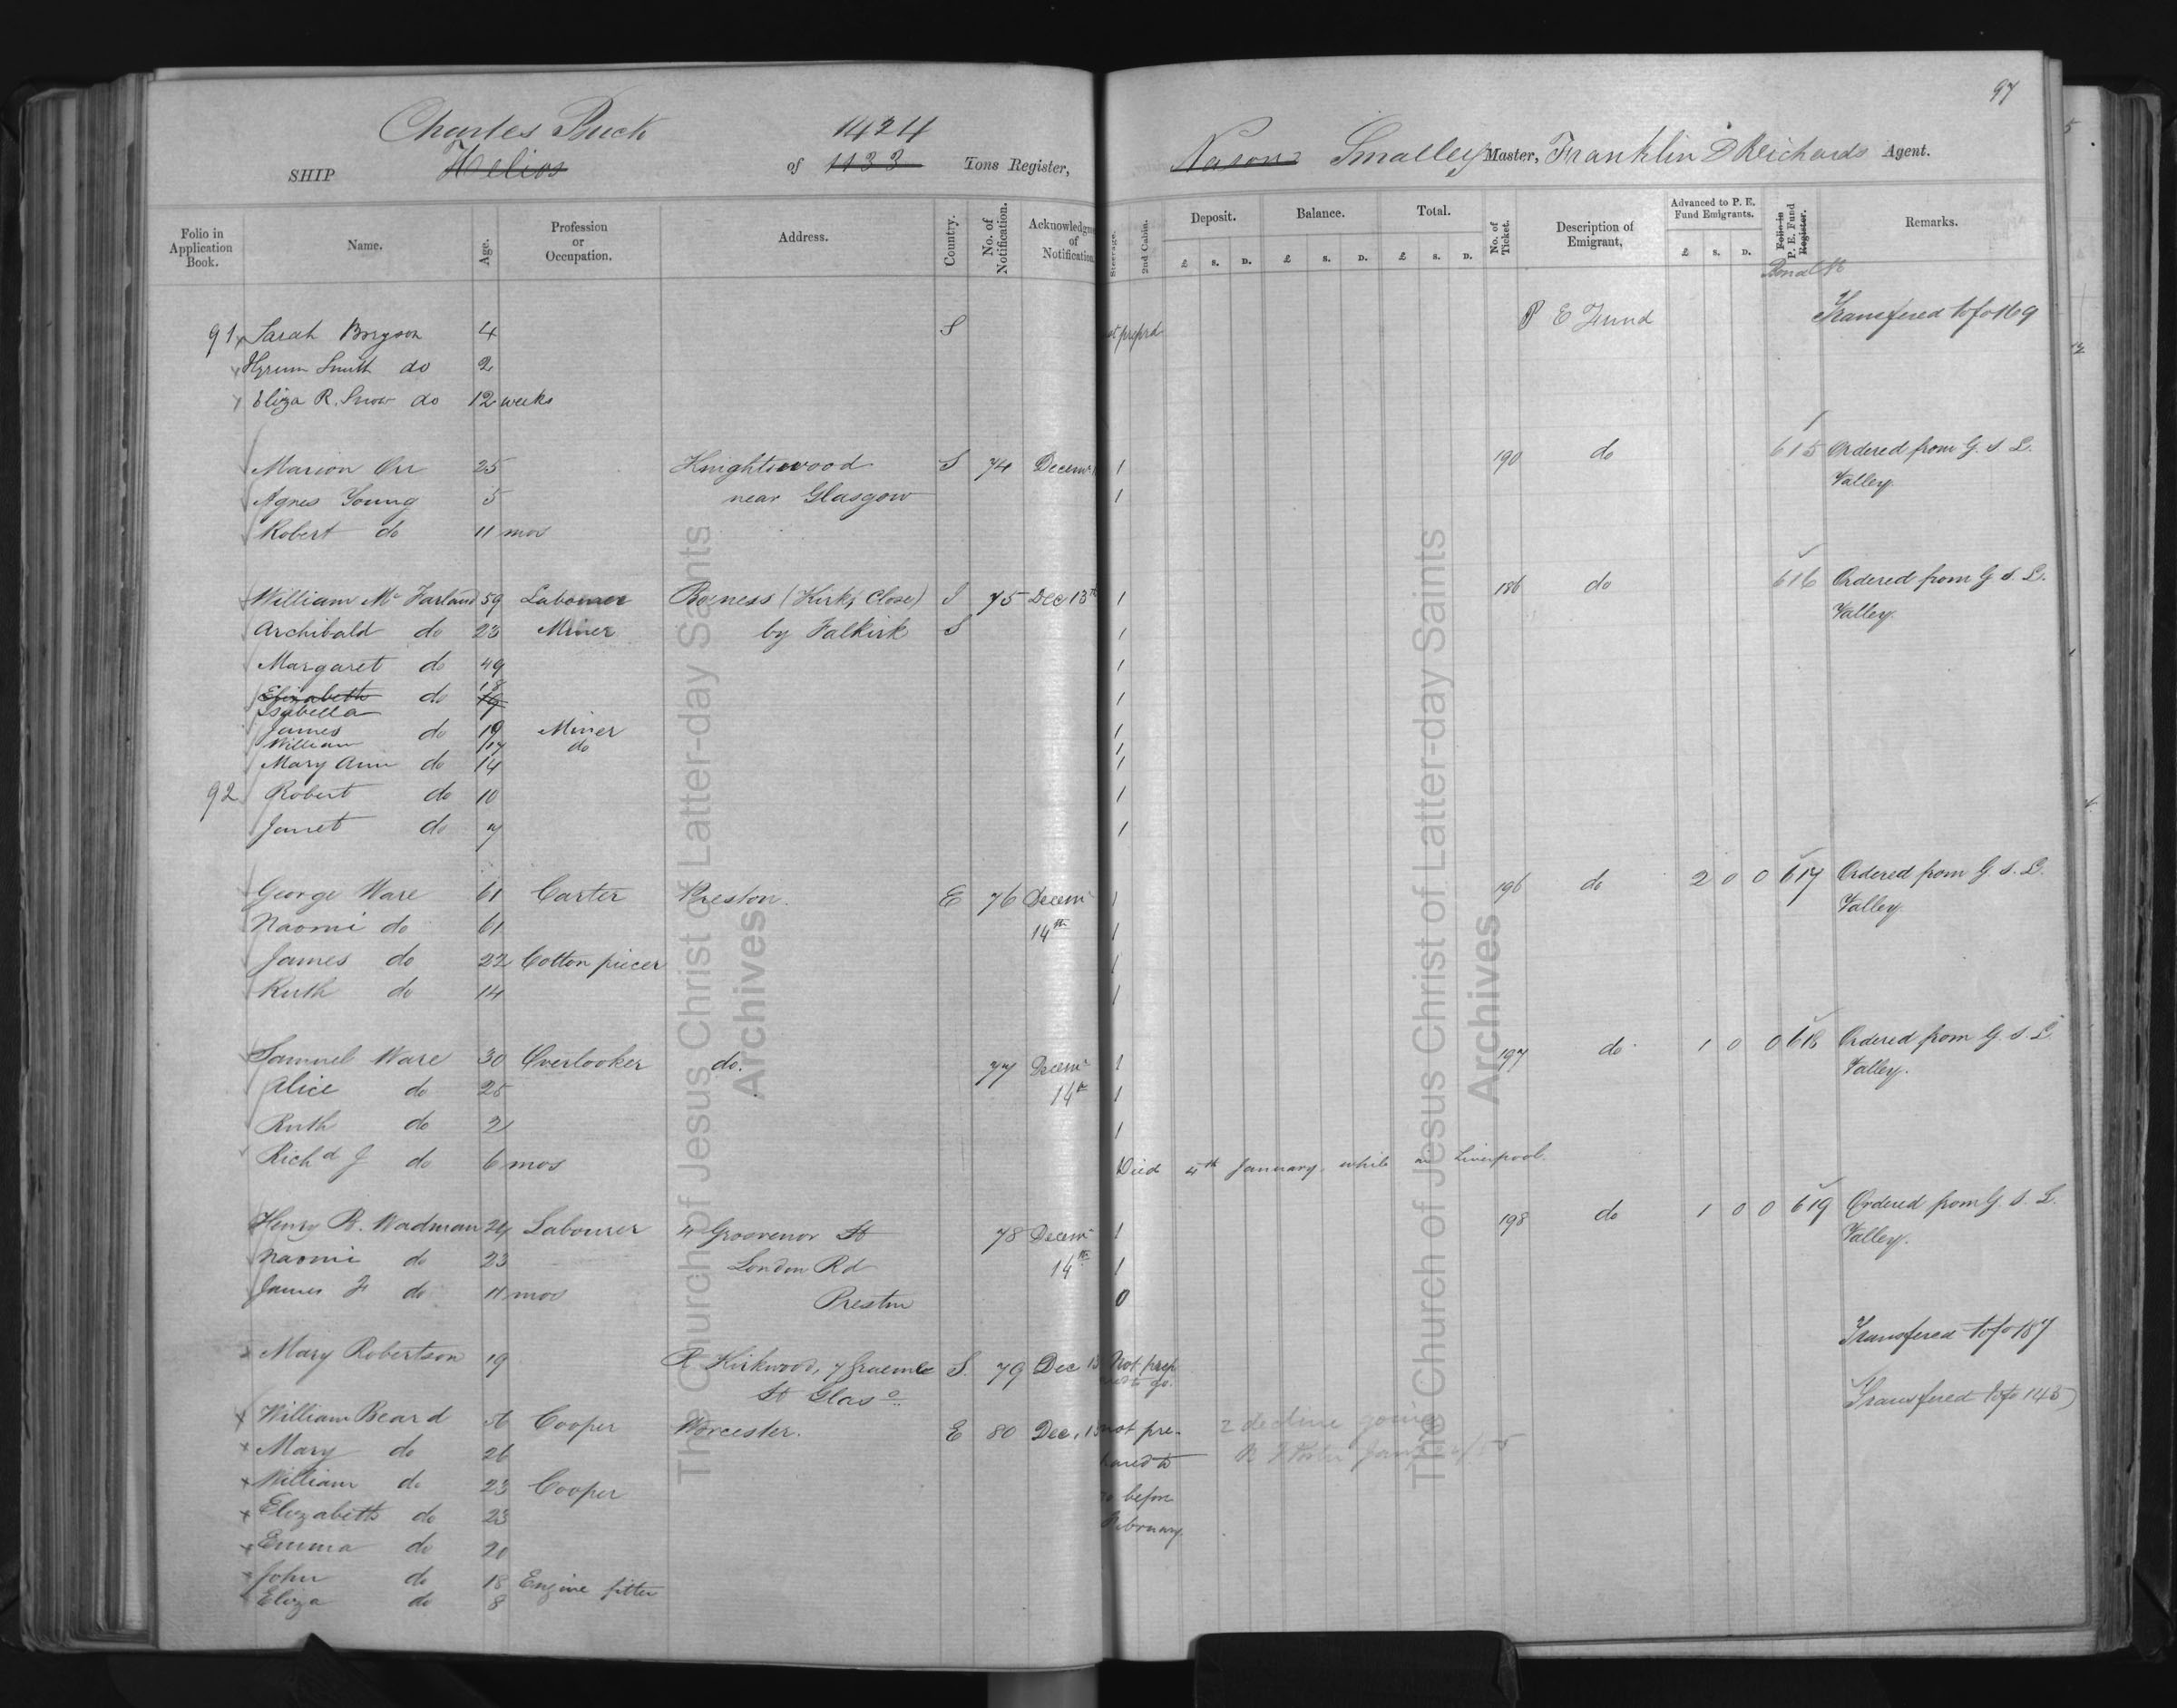 97
Charles Buck 1424
SHIP Helios of 1133 Tons Register, Nason Smalley Master, Franklin D Richards Agent.
Folio in Application Book. Name. Age. Profession or Occupation. Address. Country. No. of Notification. Acknowledgme of Notification. Steerage. 2nd Cabin. Deposit. £ s. D. Balance. £ s. D. Total. £ s. D. No. of Ticket. Description of Emigrant, Advanced to P. E. Fund Emigrants. £ s. D. Folio in P. E. Fund Register. Remarks.
Bond No
91 Sarah Bryson 4 S P E Fund Transfered to fo 169
Hyrum Smith do 2
Eliza R. Snow do 12 weeks
Marion Orr 25 Knightswood S 74 Decem 1 190 do 615 Ordered from G. S. L.
Agnes Young 5 near Glasgow 1 Valley.
Robert do 11 mos
William Mc Farland 59 Labourer Boeness (Kirk, Close) S 75 Dec 13th 1 186 do 616 Ordered from G. S. L.
Archibald do 23 Miner by Falkirk S 1 Valley.
Margaret do 49 1
Elizabeth do 18 1
Isabella
James do 19 Miner 1
William 17 do 1
Mary Ann do 14 1
92 Robert do 10 1
Janet do 7 1
George Ware 61 Carter Preston. E 76 Decem 1 196 do 2 0 0 617 Ordered from G. S. L.
Naomi do 61 14th 1 Valley.
James do 22 Cotton piecer 1
Ruth do 14 1
Samuel Ware 30 Overlooker do. 77 Decem 1 197 do 1 0 0 618 Ordered from G. S. L
Alice do 25 14th 1 Valley.
Ruth do 2 1
Richd J do 6 mos Died 4th January, while in Liverpool.
Henry R. Wadman 24 Labourer 4 Grosvenor St 78 Decem 1 198 do 1 0 0 619 Ordered from G. S. L.
Naomi do 23 London Rd 14th 1 Valley.
James F do 11 mos Preston 0
Transfered to fo 187
Mary Robertson 19 R Kirkwood, 7 Graeme S. 79 Dec 13 Not prep
St Glaso go.
Transfered to fo 143
William Beard 56 Cooper Worcester. E 80 Dec. 13 not pre-
Mary do 26 pared to
William do 23 Cooper go before
Elizabeth do 23 February.
2 decline going
Emma do 21
John do 18 Engine fitter
Eliza do 8
The Church of Jesus Christ of Latter-day Saints
Archives
The Church of Jesus Christ of Latter-day Saints
Archives